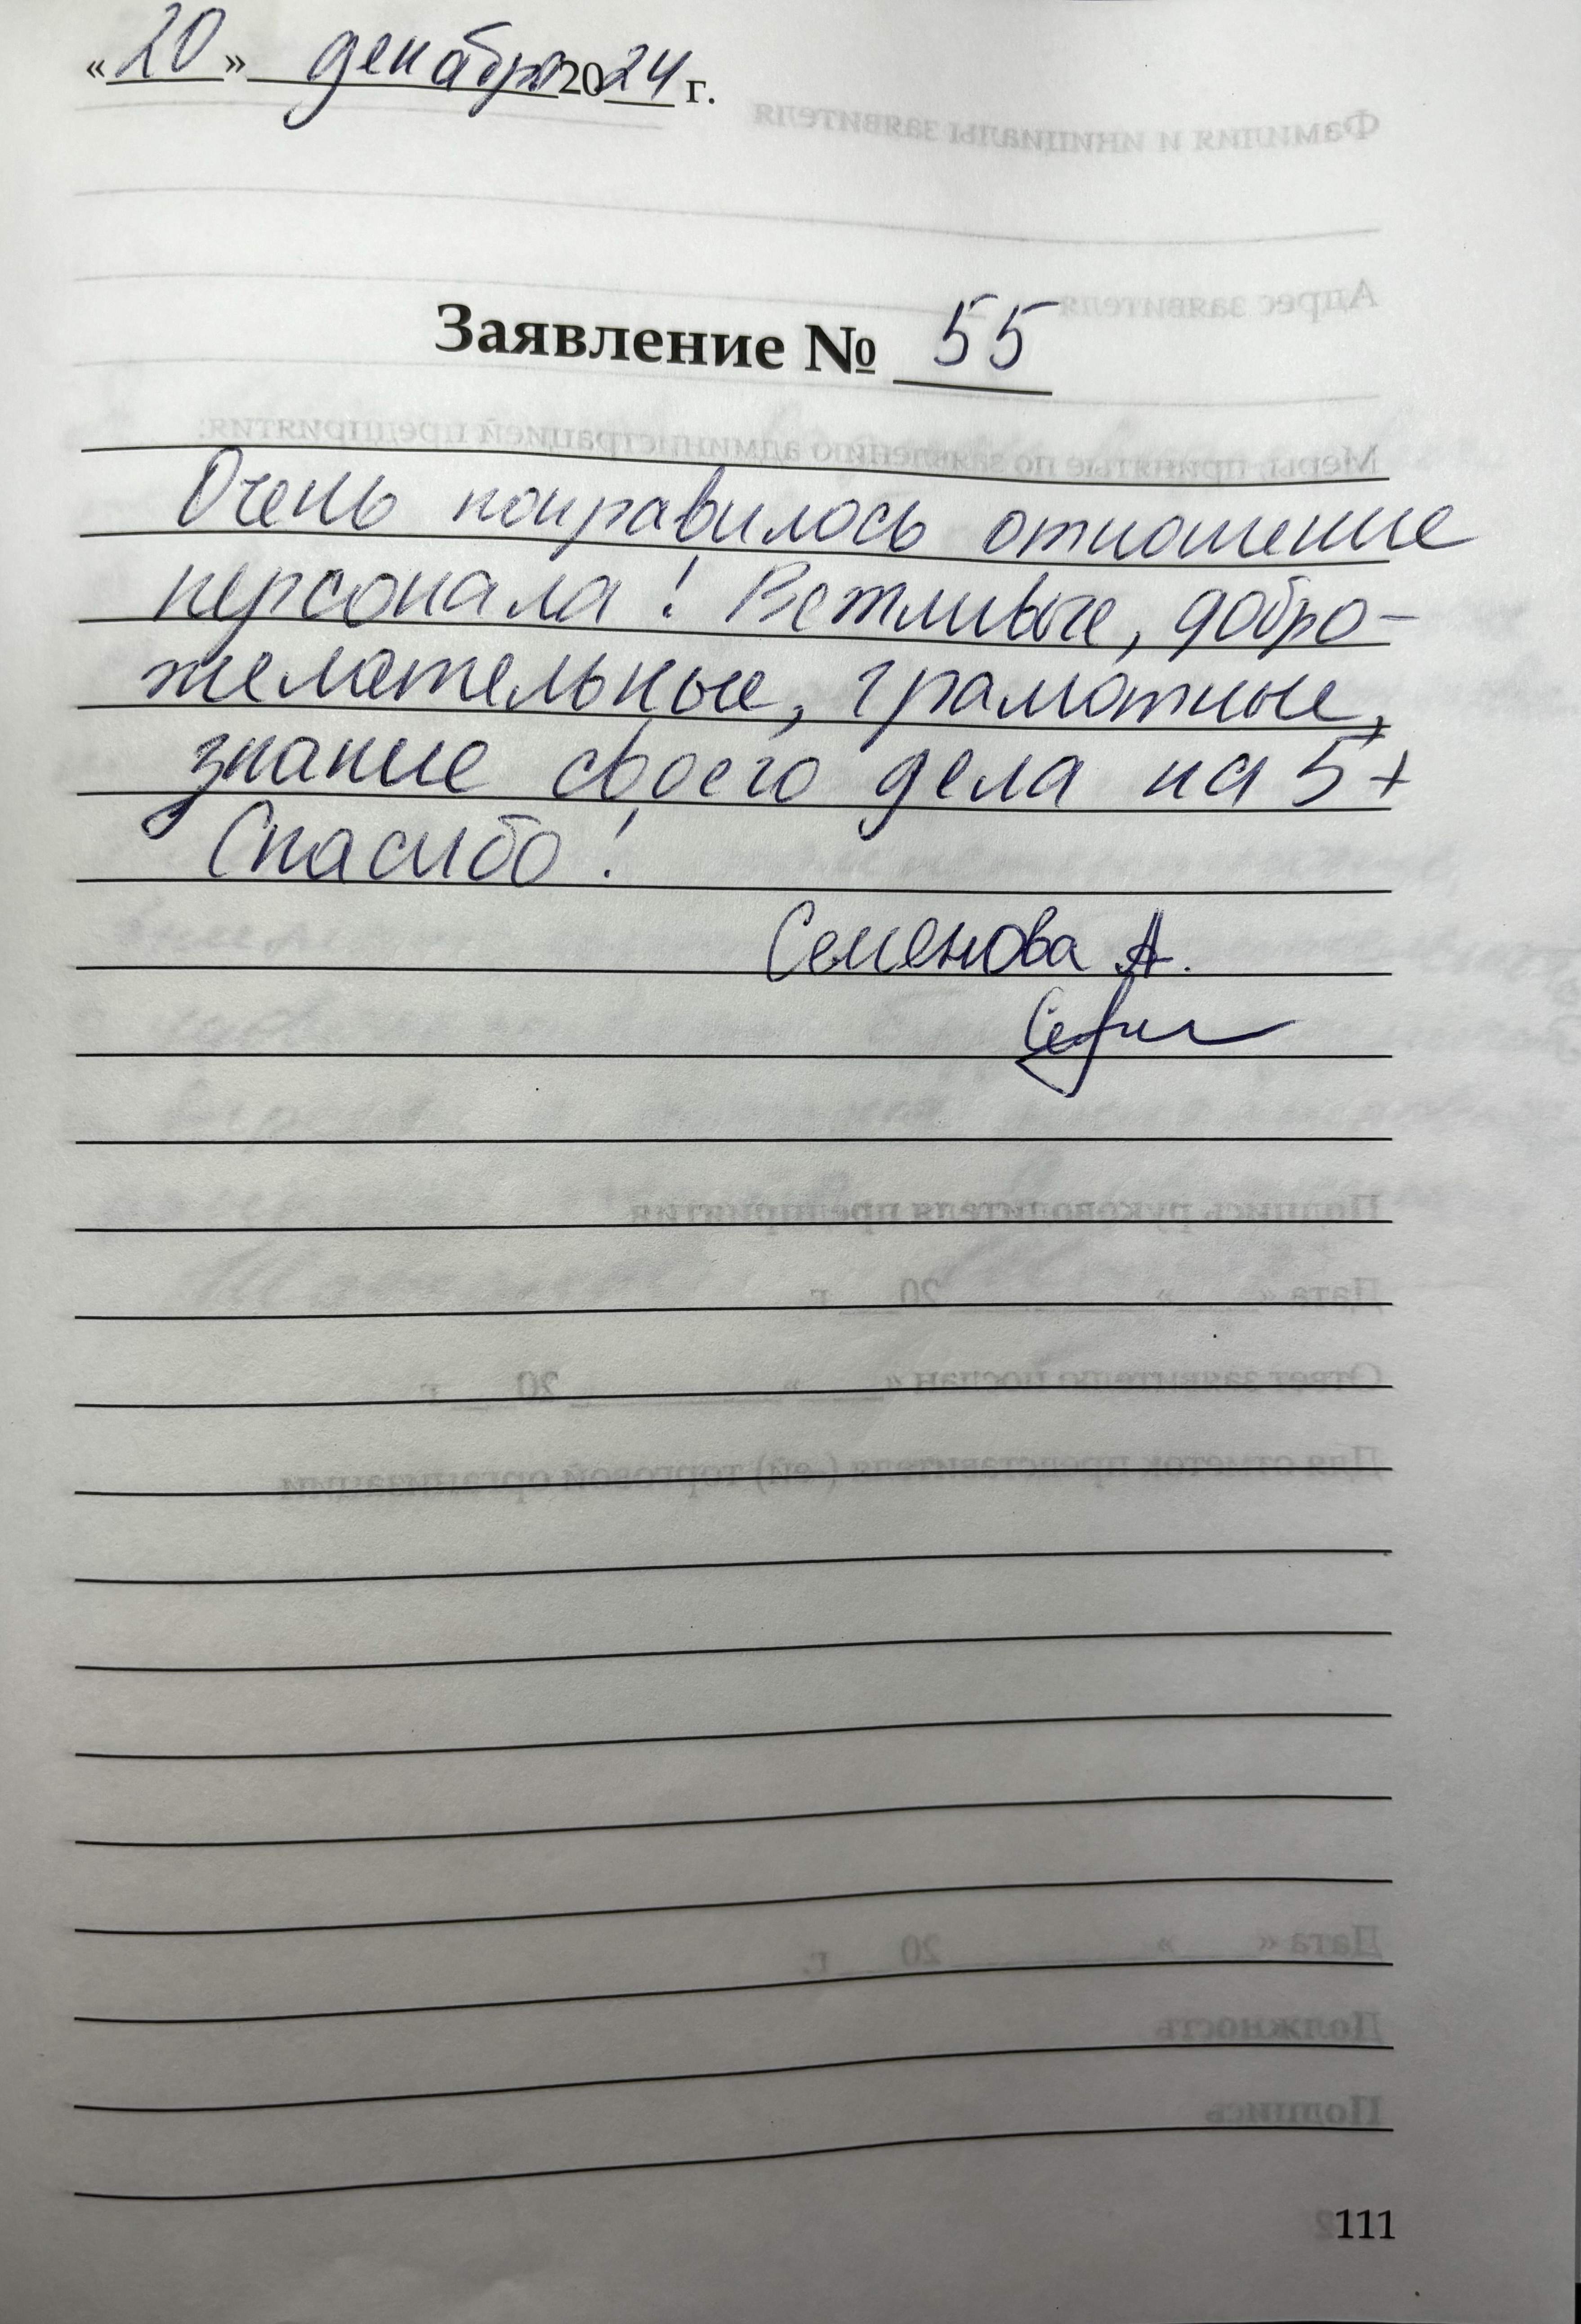 «20» декабря 2024 г.
Заявление № 55
Очень понравилось отношение
персонала! Вежливые, добро-
желательные, грамотные,
знание своего дела на 5+
Спасибо!
Семенова А.
111